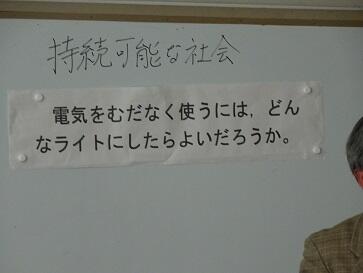 持続可能な社会
電気をむだなく使うには，どん
なライトにしたらよいだろうか。